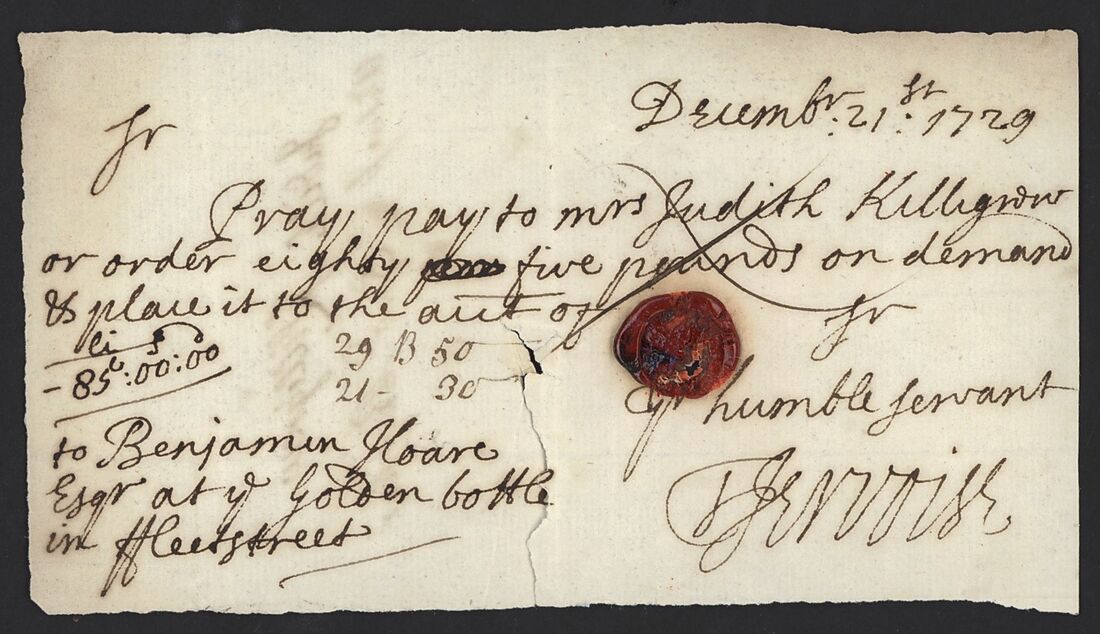 Decembr: 21:st 1729
Sr
Pray pay to mrs Judith Killigrew
or order eighty five pounds on demand
& place it to the acct of Sr
li s d
- 85:00:00
29 B 50
21 - 30
yr humble servant
to Benjamin Hoare
Esqr at ye Golden bottle
in ffleetstreet
T Jervoise